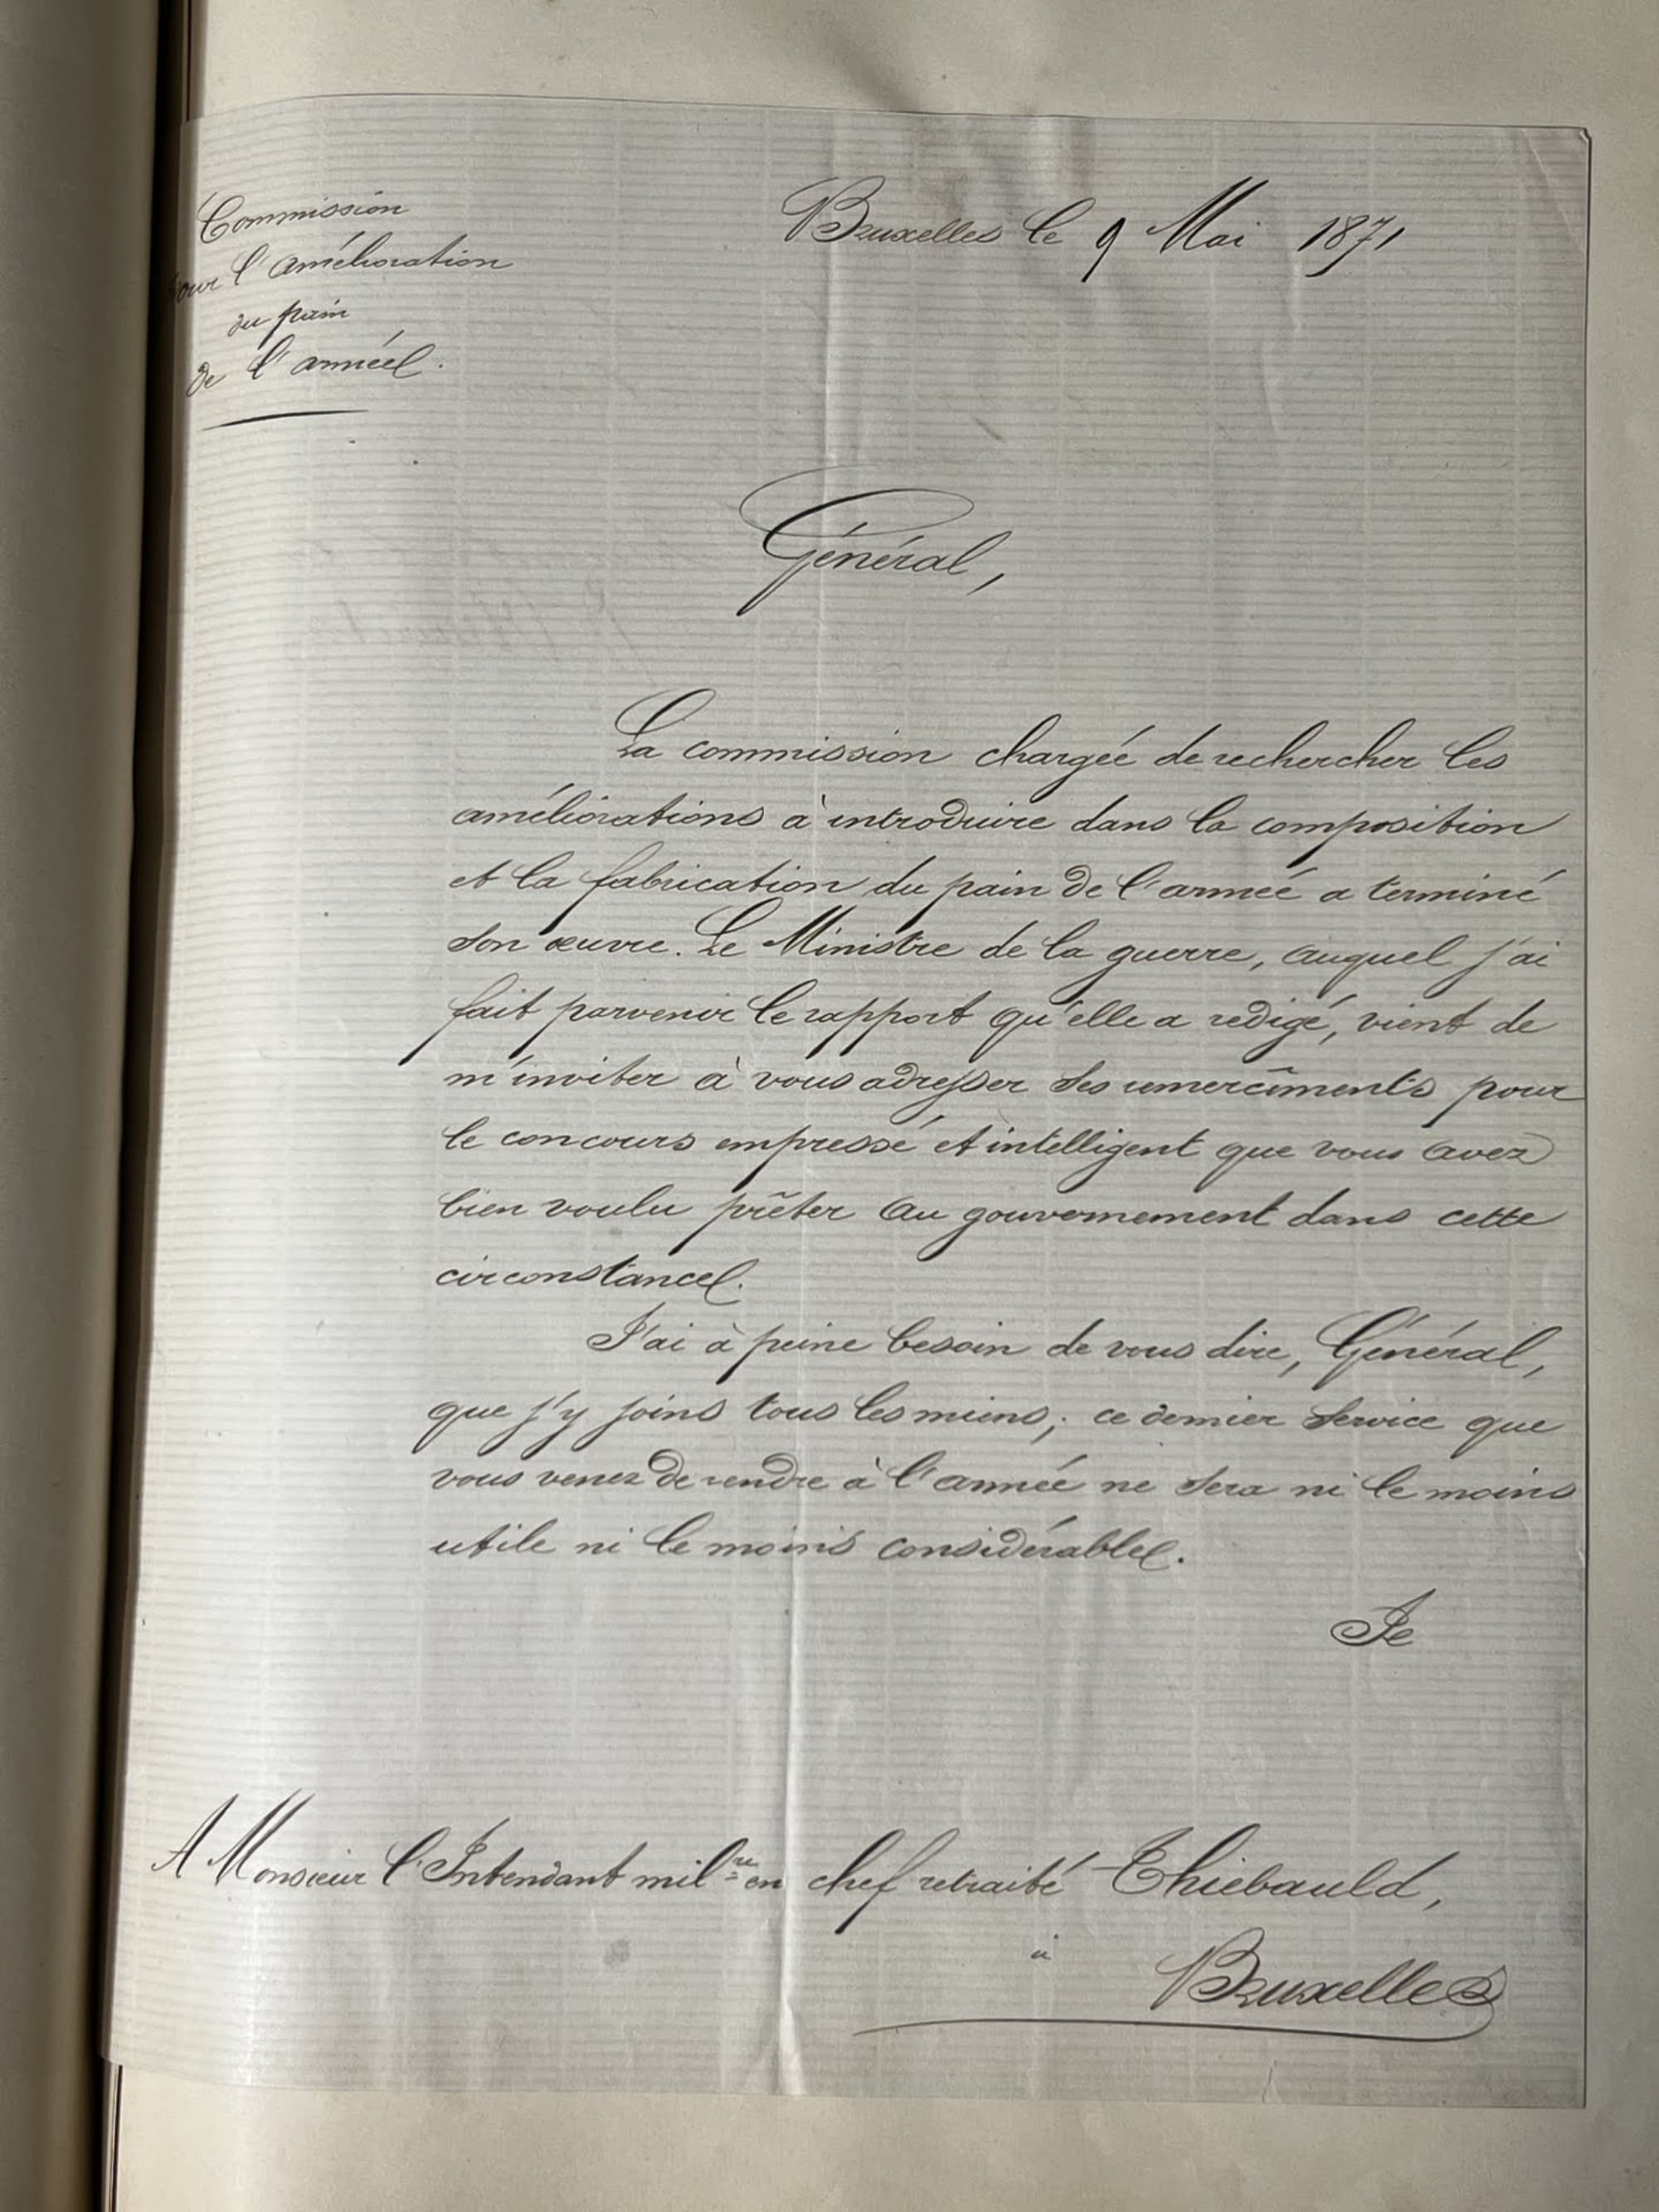 Commission
pour l'amélioration
du pain
de l'armée.
Bruxelles le 9 Mai 1871
Général,
La commission chargée de rechercher les
améliorations à introduire dans la composition
et la fabrication du pain de l'armée a terminé
son œuvre. Le Ministre de la guerre, auquel j'ai
fait parvenir le rapport qu'elle a redigé, vient de
m'inviter à vous adresser ses remercîments pour
le concours empressé et intelligent que vous avez
bien voulu prêter au gouvernement dans cette
circonstance.
J'ai à peine besoin de vous dire, Général,
que j'y joins tous les miens; ce dernier service que
vous venez de rendre à l'armée ne sera ni le moins
utile ni le moins considérable.
Je
A Monsieur l'Intendant mil.re en chef retraité Thiebauld,
à
Bruxelles